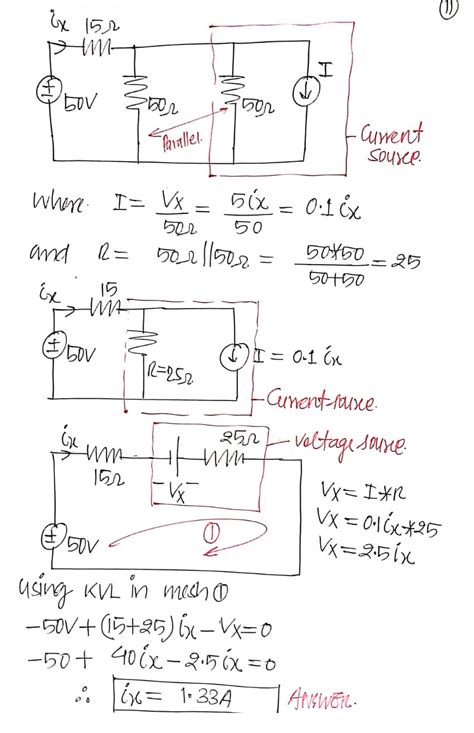 11
ix 15Ω
50V
50Ω
50Ω
I
Parallel
Current source.
where. I = Vx/50Ω = 5ix/50 = 0.1 ix
and R = 50Ω||50Ω = 50*50/50+50 = 25
ix 15
50V
R=25Ω
I = 0.1 ix
Current source.
ix
15Ω
25Ω
voltage source.
- Vx -
50V
1
Vx = I*R
Vx = 0.1ix*25
Vx = 2.5ix
using KVL in mesh 1
-50V+(15+25)ix-Vx=0
-50+ 40ix-2.5ix=0
∴ ix = 1.33A ANSWER.